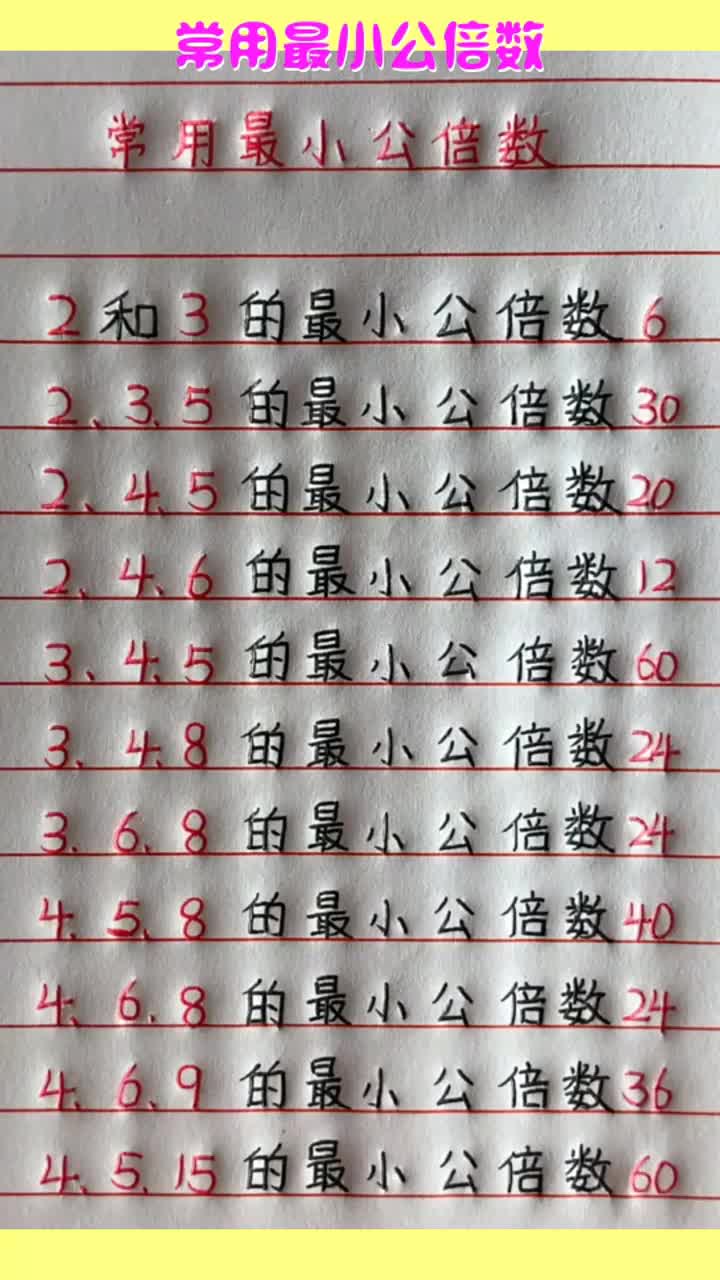 常用最小公倍数
常用最小公倍数
2和3的最小公倍数6
2、3、5的最小公倍数30
2、4、5的最小公倍数20
2、4、6的最小公倍数12
3、4、5的最小公倍数60
3、4、8的最小公倍数24
3、6、8的最小公倍数24
4、5、8的最小公倍数40
4、6、8的最小公倍数24
4、6、9的最小公倍数36
4、5、15的最小公倍数60